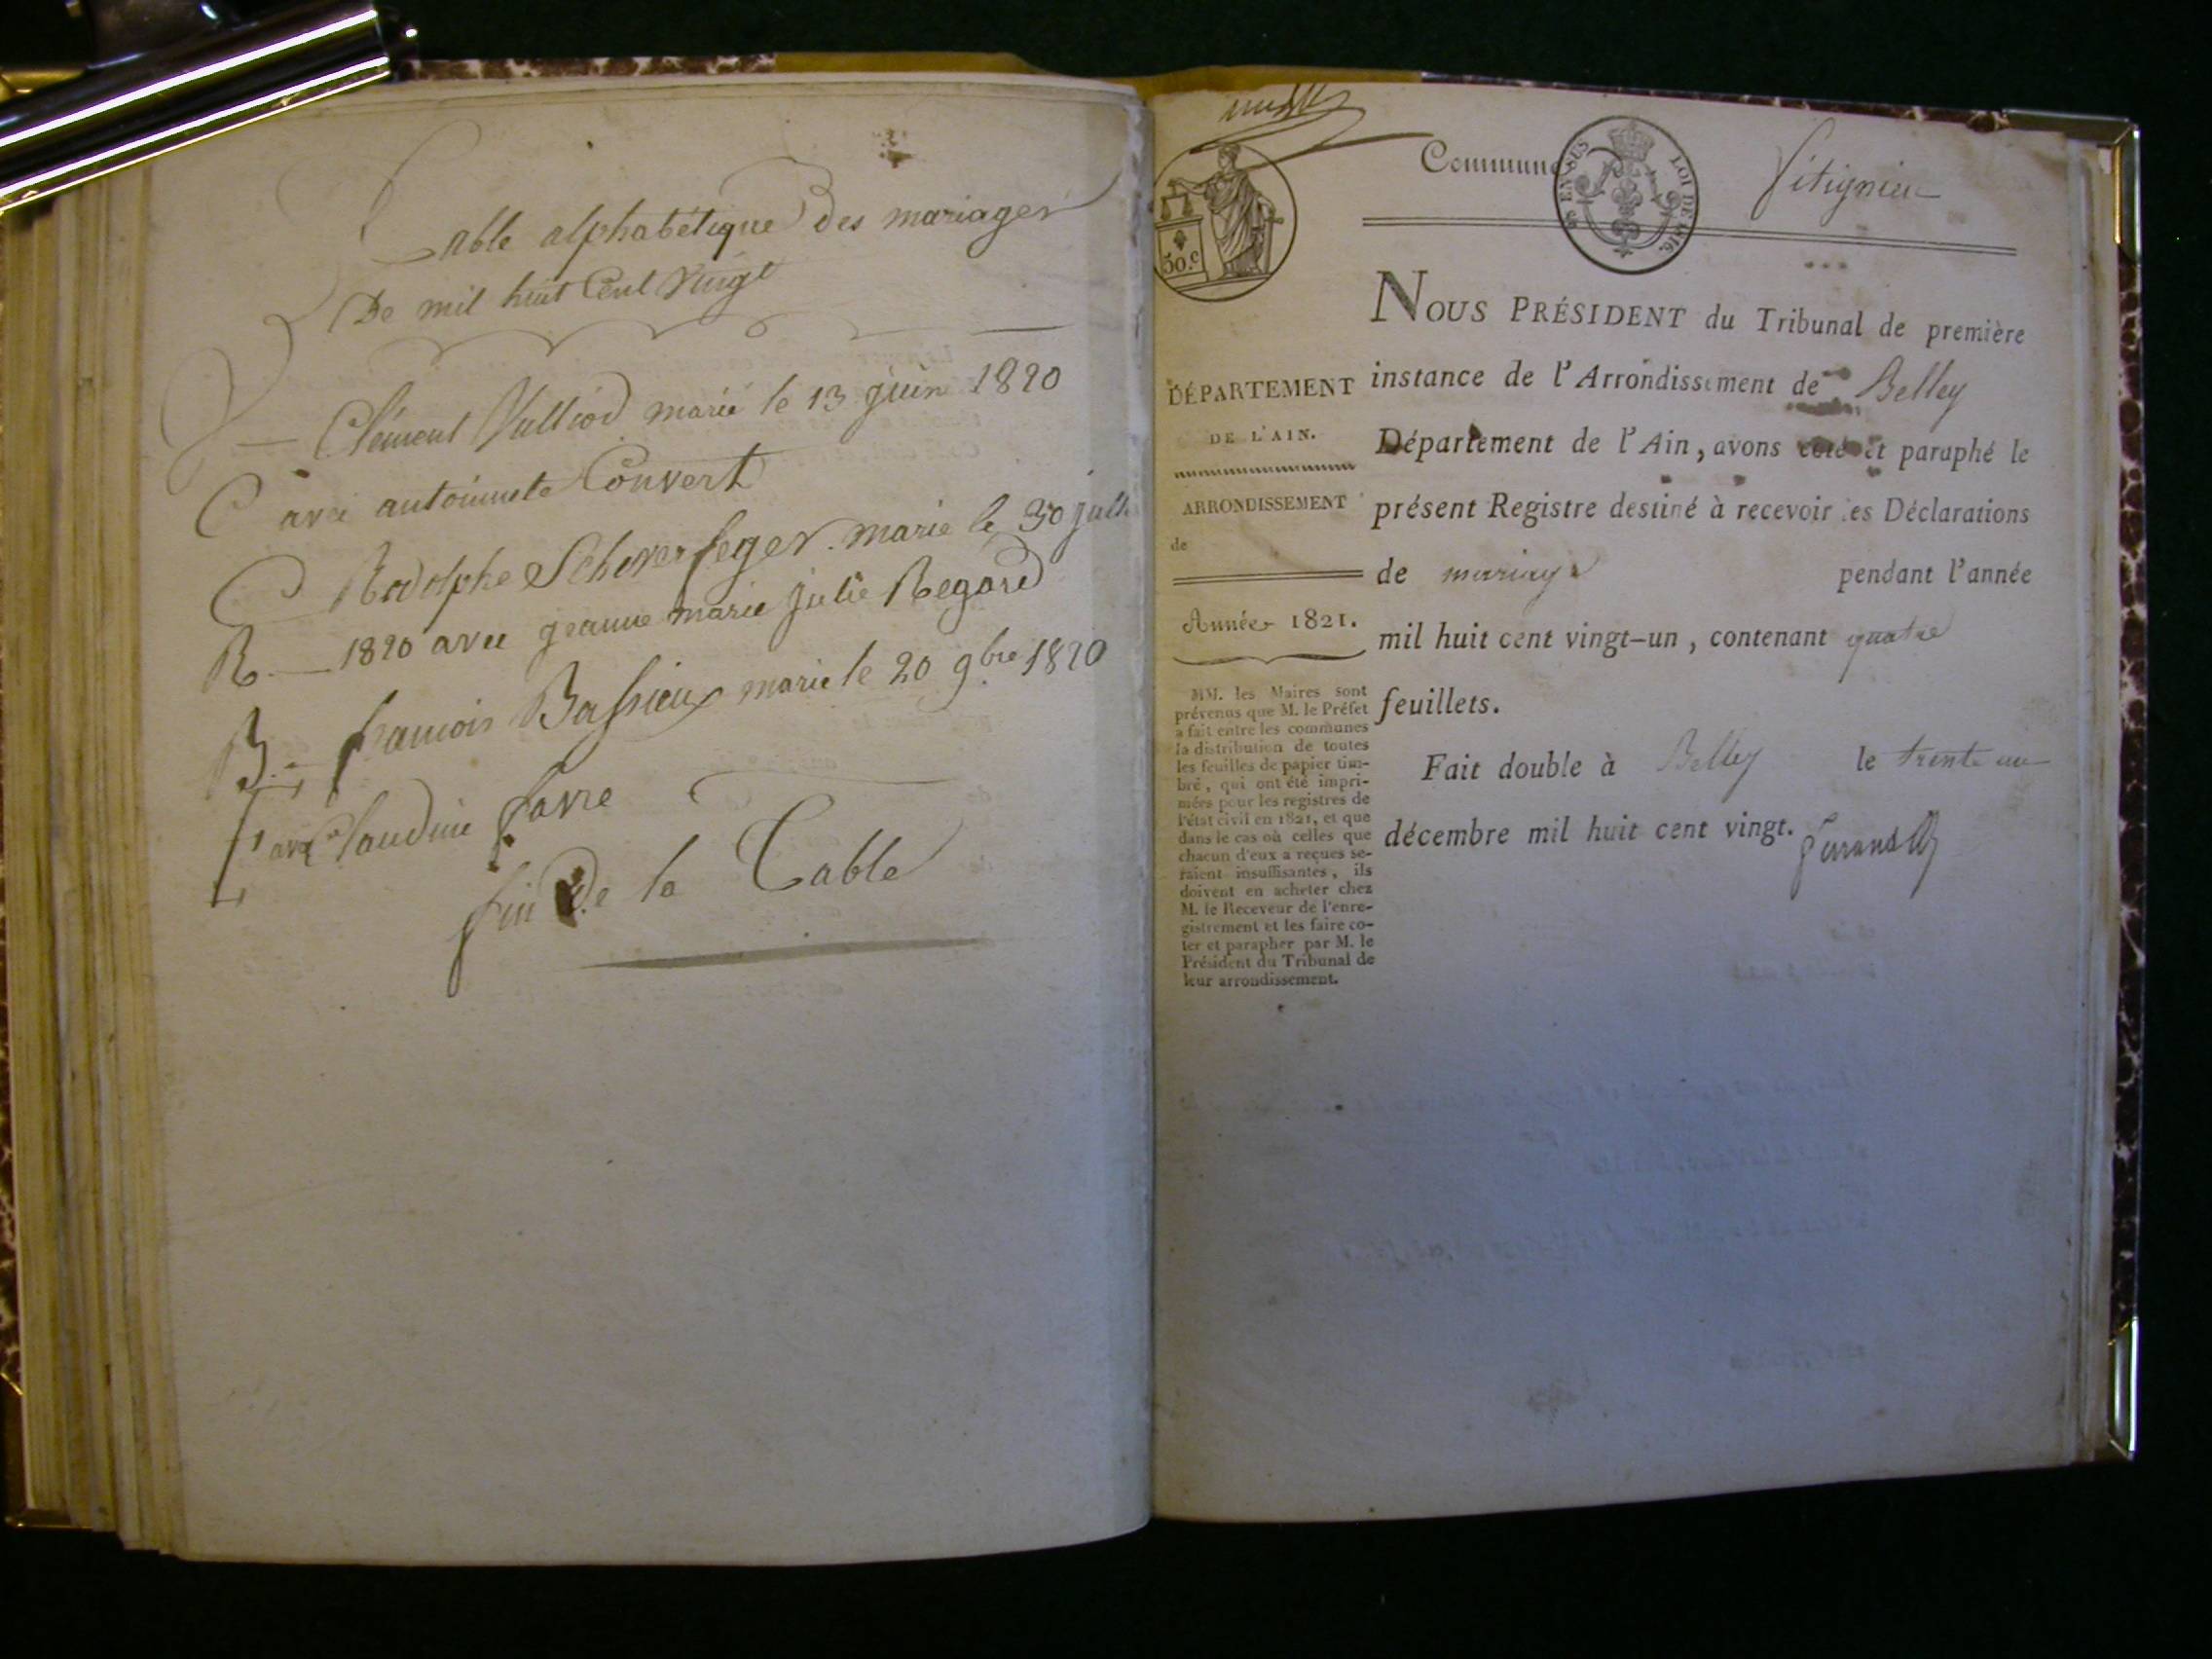 Table alphabétique Des mariages
De mil huit Cent Vingt
V — Clément Vulliod marié le 13 juin 1820
C avec antoinnete Convert
Rodolphe marie le 30
R — 1820 avec jeanne marie julie Regard
B — francois Bassieux marie le 20 9.bre 1820
F avec Claudine favre
fin De la Table
Commune Pitignieu
EN SUS LOI DE 1816.
50.c
NOUS PRÉSIDENT du Tribunal de première
instance de l'Arrondissement de Belley
Département de l'Ain, avons coté et paraphé le
présent Registre destiné à recevoir les Déclarations
de mariage pendant l'année
mil huit cent vingt-un, contenant quatre
feuillets.
Fait double à Belley le trente un
décembre mil huit cent vingt.
DÉPARTEMENT
DE L'AIN.
ARRONDISSEMENT
de
Année 1821.
MM. les Maires sont
prévenus que M. le Préfet
a fait entre les communes
la distribution de toutes
les feuilles de papier tim-
bré, qui ont été impri-
mées pour les registres de
l'état civil en 1821, et que
dans le cas où celles que
chacun d'eux a reçues se-
raient insuffisantes, ils
doivent en acheter chez
M. le Receveur de l'enre-
gistrement et les faire co-
ter et parapher par M. le
Président du Tribunal de
leur arrondissement.